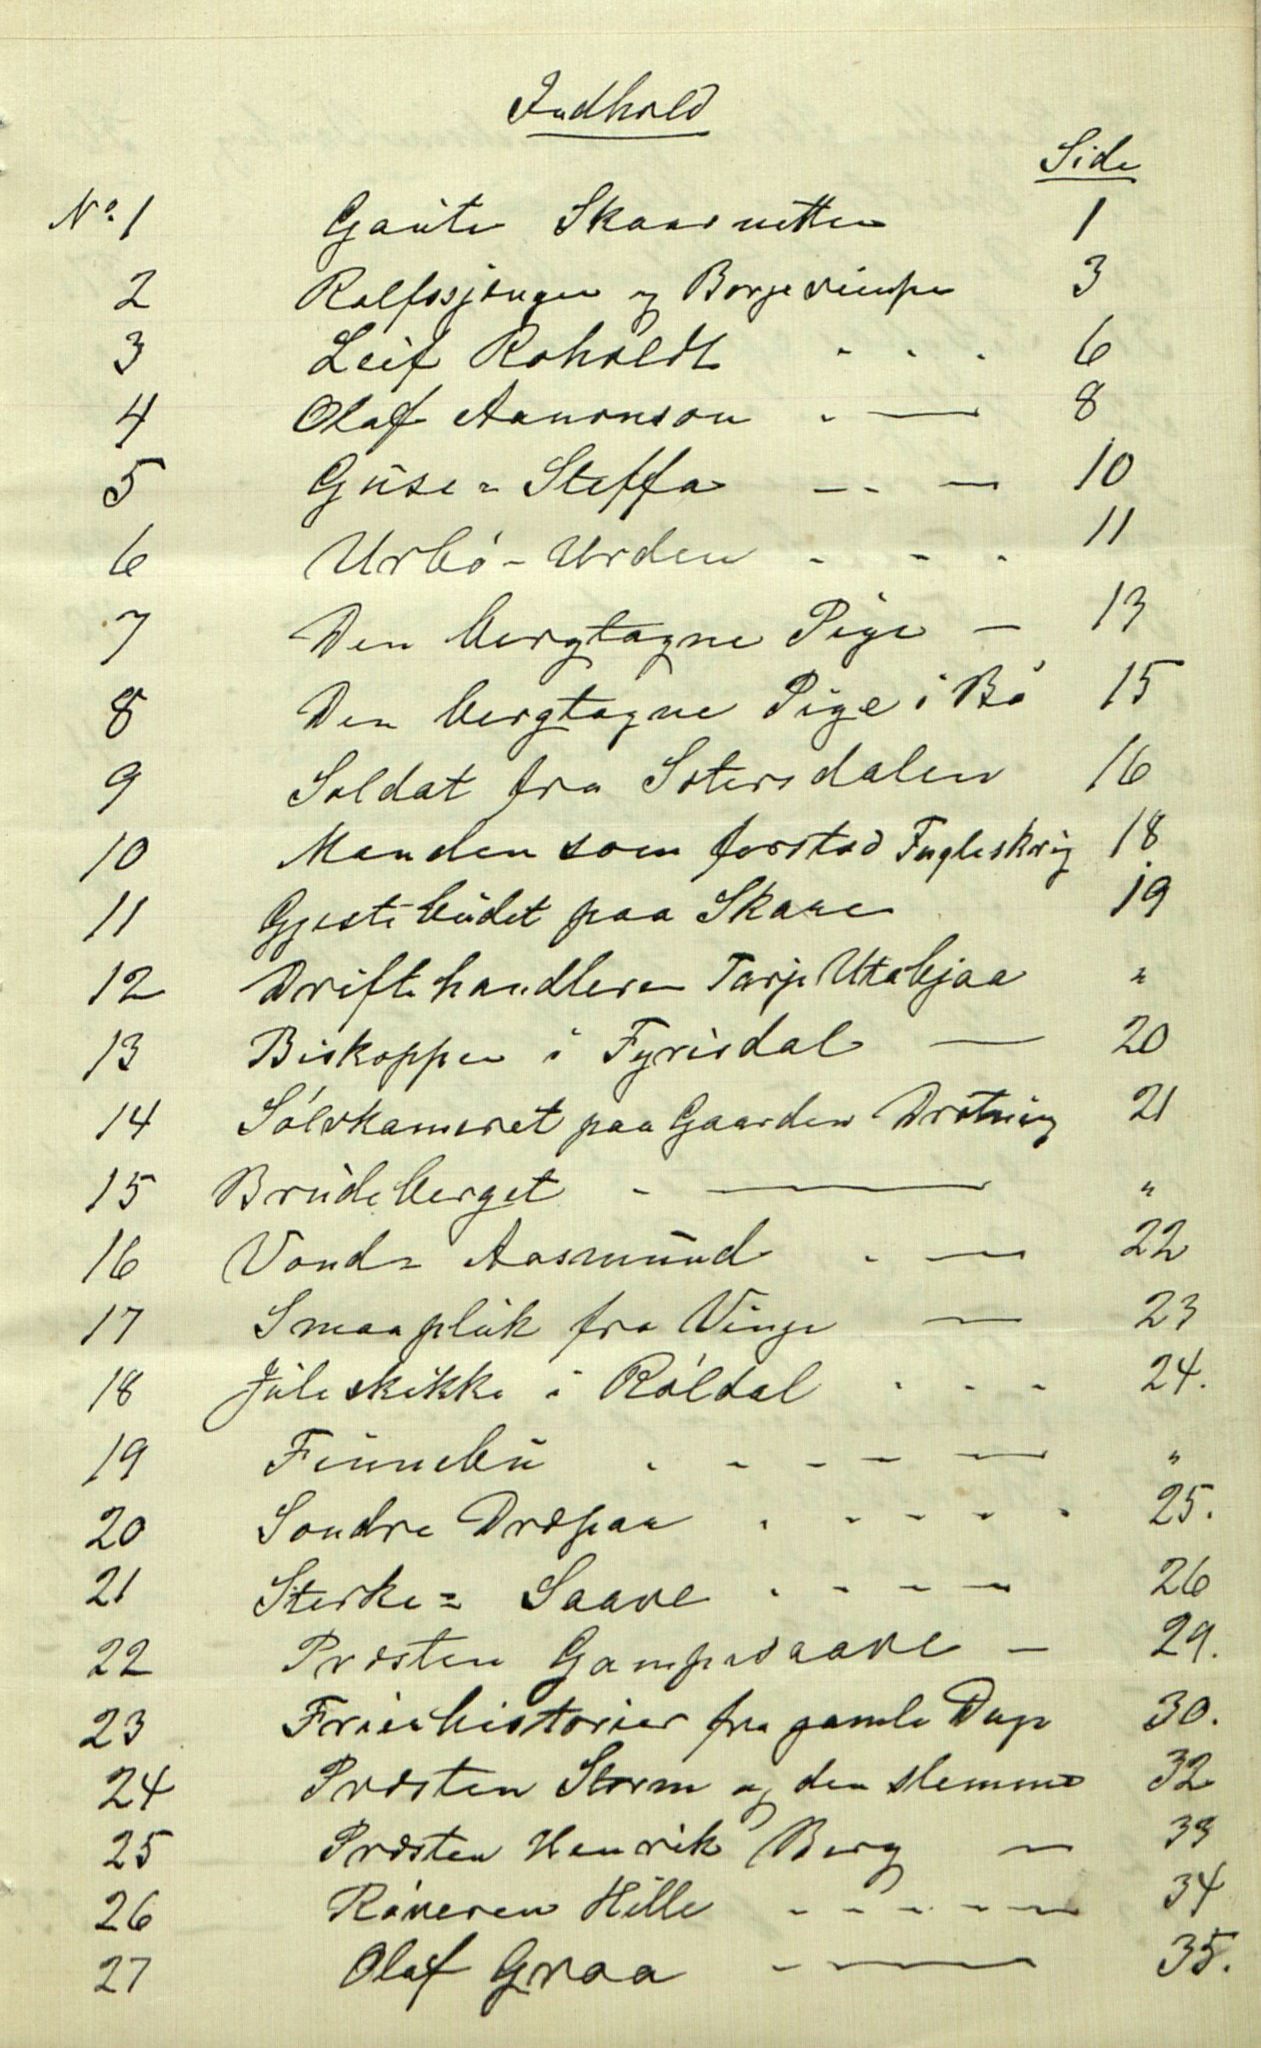 Indhold
Side
No. 1 Gaute Skaarnetten 1
2 Rolfssjongen og Borgevimpe 3
3 Leif Roholdt - - - 6
4 Olaf Aamonson - — 8
5 Guse= Steffa — - — 10
6 Urbö-Urden - - - 11
7 Den bergtagne Pige — 13
8 Den bergtagne Pige i Bö 15
9 Soldat fra Sætersdalen 16
10 Manden som forstod Fugleskrig 18
11 Gjestebudet paa Skare 19
12 Driftehandleren Tarje Utabjaa "
13 Biskoppen i Fyrisdal — 20
14 Sölvkameret paa Gaarden Drotning 21
15 Brudeberget - — "
16 Vond= Aasmund - — 22
17 Smaapluk fra Vinje — 23
18 Juleskikke i Röldal - - - 24.
19 Finnebu - - - - — "
20 Sondre Dræpaa - - - - - 25.
21 Sterke= Saave - - - — 26
22 Presten Gampesaave — 29.
23 Frierhistorier fra gamle Dage 30.
24 Presten Storm og den slemme 32
25 Presten Henrik Berg — 33
26 Röveren Hille - - - - — 34
27 Olaf Graa - — 35.